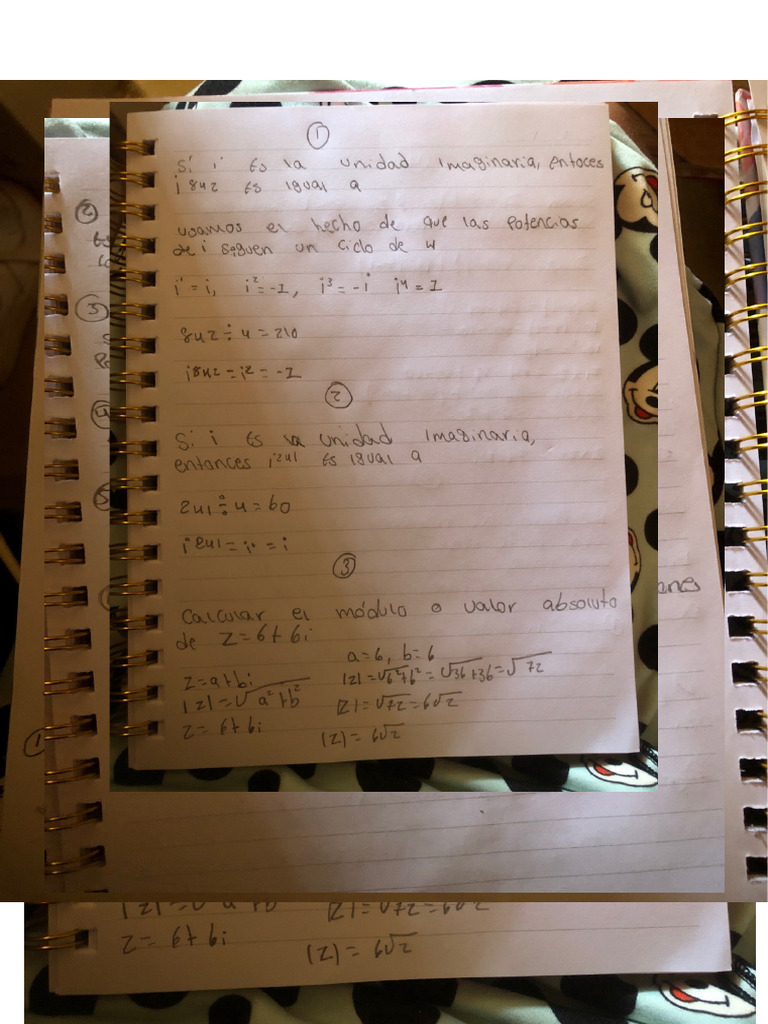 ①
Si i Es la unidad imaginaria, entoces
i⁸⁴² Es igual a
usamos el hecho de que las potencias
de i siguen un ciclo de 4
i¹ = i, i² = -1, i³ = -i i⁴ = 1
842 ÷ 4 = 210
i⁸⁴² = i² = -1
②
Si i Es la unidad imaginaria,
entances i²⁴¹ Es igual a
241 ÷ 4 = 60
i²⁴¹ = i¹ = i
③
Calcular el módulo o valor absoluto
de Z = 6 + 6i
a = 6, b = 6
Z = a + bi |z| = √6² + 6² = √36 + 36 = √72
|z| = √a² + b² |z| = √72 = 6√2
Z = 6 + 6i |z| = 6√2
②
③
④
⑤
①
|z| = √a² + b² |z| = √72 = 6√2
Z = 6 + 6i |z| = 6√2